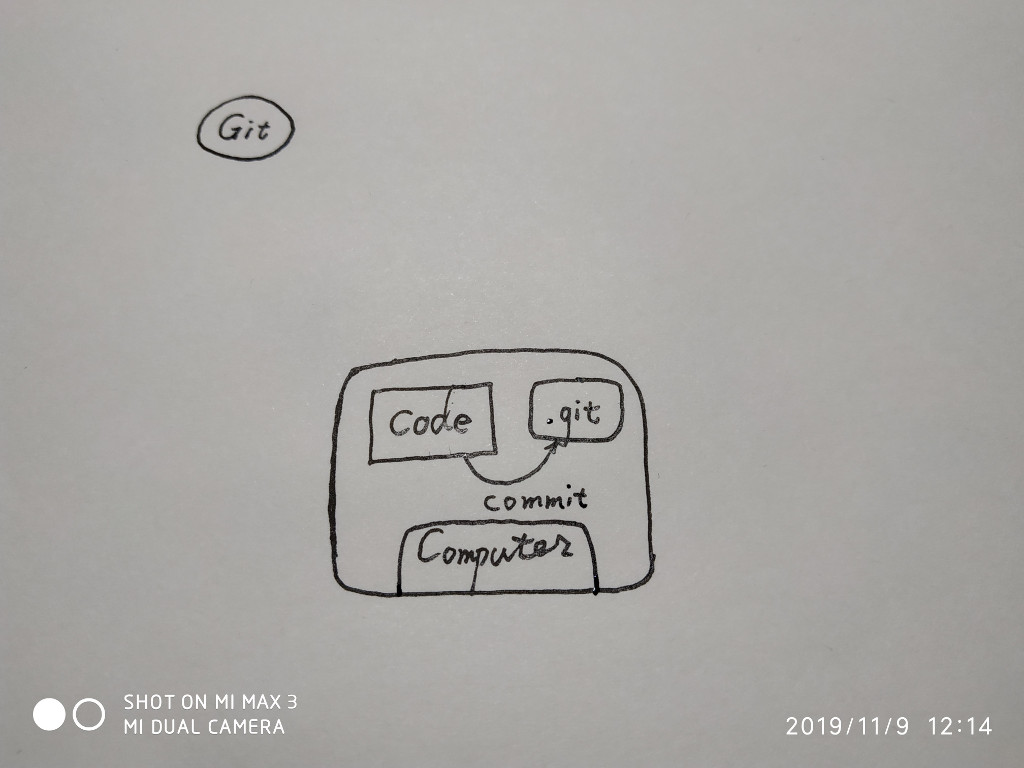 Git
Code
.git
commit
Computer
SHOT ON MI MAX 3
MI DUAL CAMERA
2019/11/9 12:14